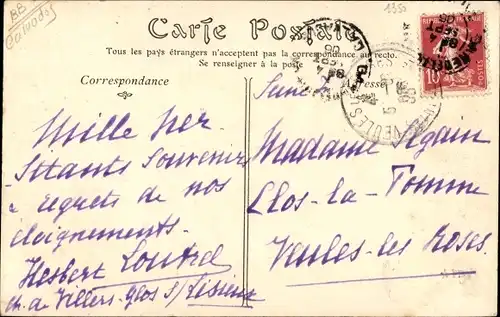 BB
Calvados
1355
Carte Postale
Tous les pays étrangers n'acceptent pas la correspondance au recto.
Se renseigner à la poste
Correspondance
Adresse
10
Mille per
sttants souvenirs
& regrets de nos
éloignements.
Hesbert Loutrel
ch. à Villers
s/ Lisieux
Seine
Madame
Clos-la-Pomme
Veules-les Roses